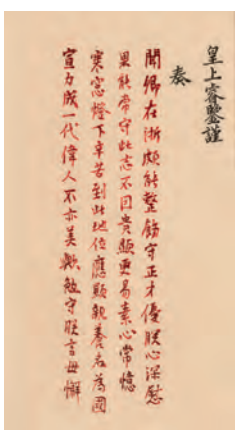 皇上睿鑒謹
奏
聞卿在浙頗能整飭守正才優朕心深慰
果能常守此志不因貴顯更易素心常憶
寒窓燈下辛苦到此地位應顯親養名為國
宣力成一代偉人不亦美歟勉守朕言毋懈